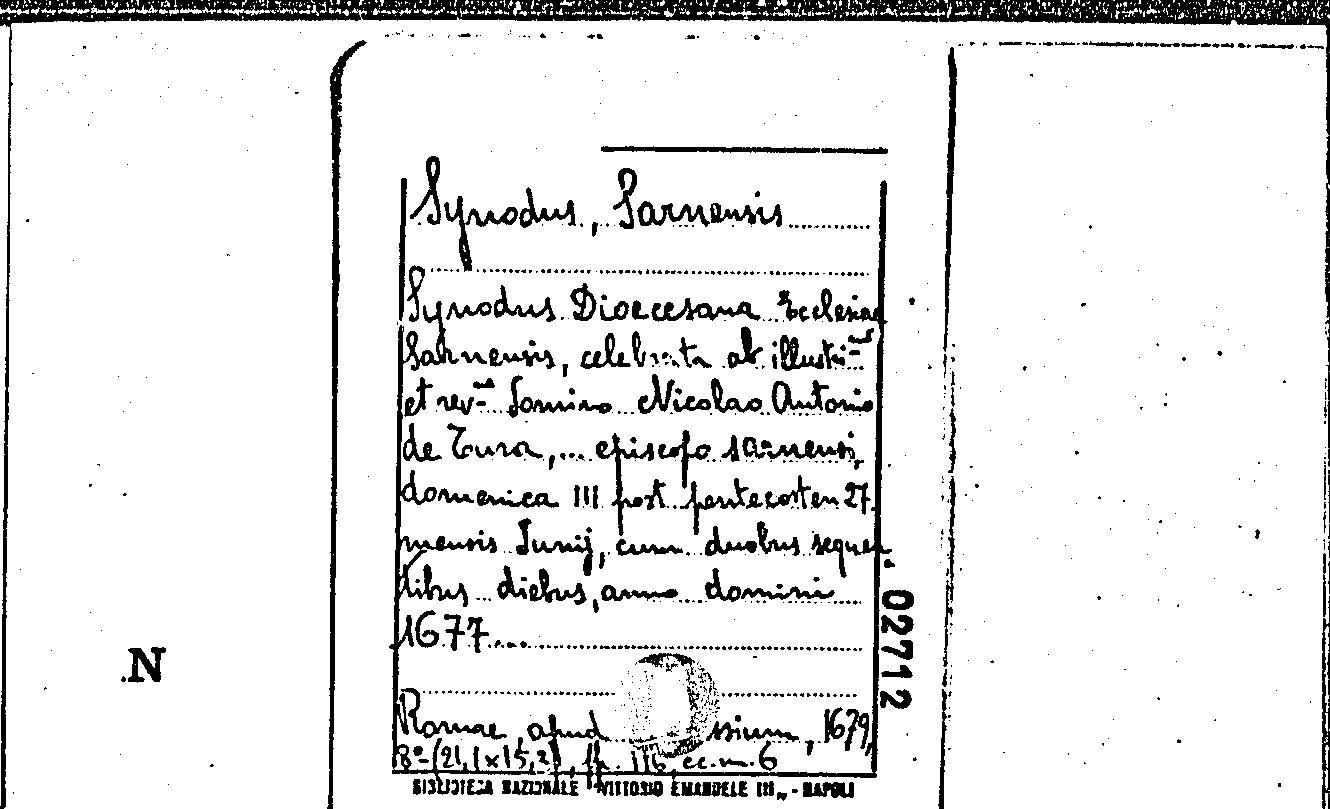 Synodus, Sarnensis
Synodus Dioecesana Ecclesiae
Sarnensis, celebrata ab illustri-mo
et rev-mo Domino Nicolao Antonio
de Tura,... episcopo sarnensi,
domenica III post pentecosten 27
mensis Junij, cum duobus sequen
tibus diebus, anno domini
1677...
N
02712
Romae, apud ssium, 1679,
8º-(21,1x15,2), pp. 116, cc.n. 6
BIBLIOTECA NAZIONALE "VITTORIO EMANUELE III„ - NAPOLI